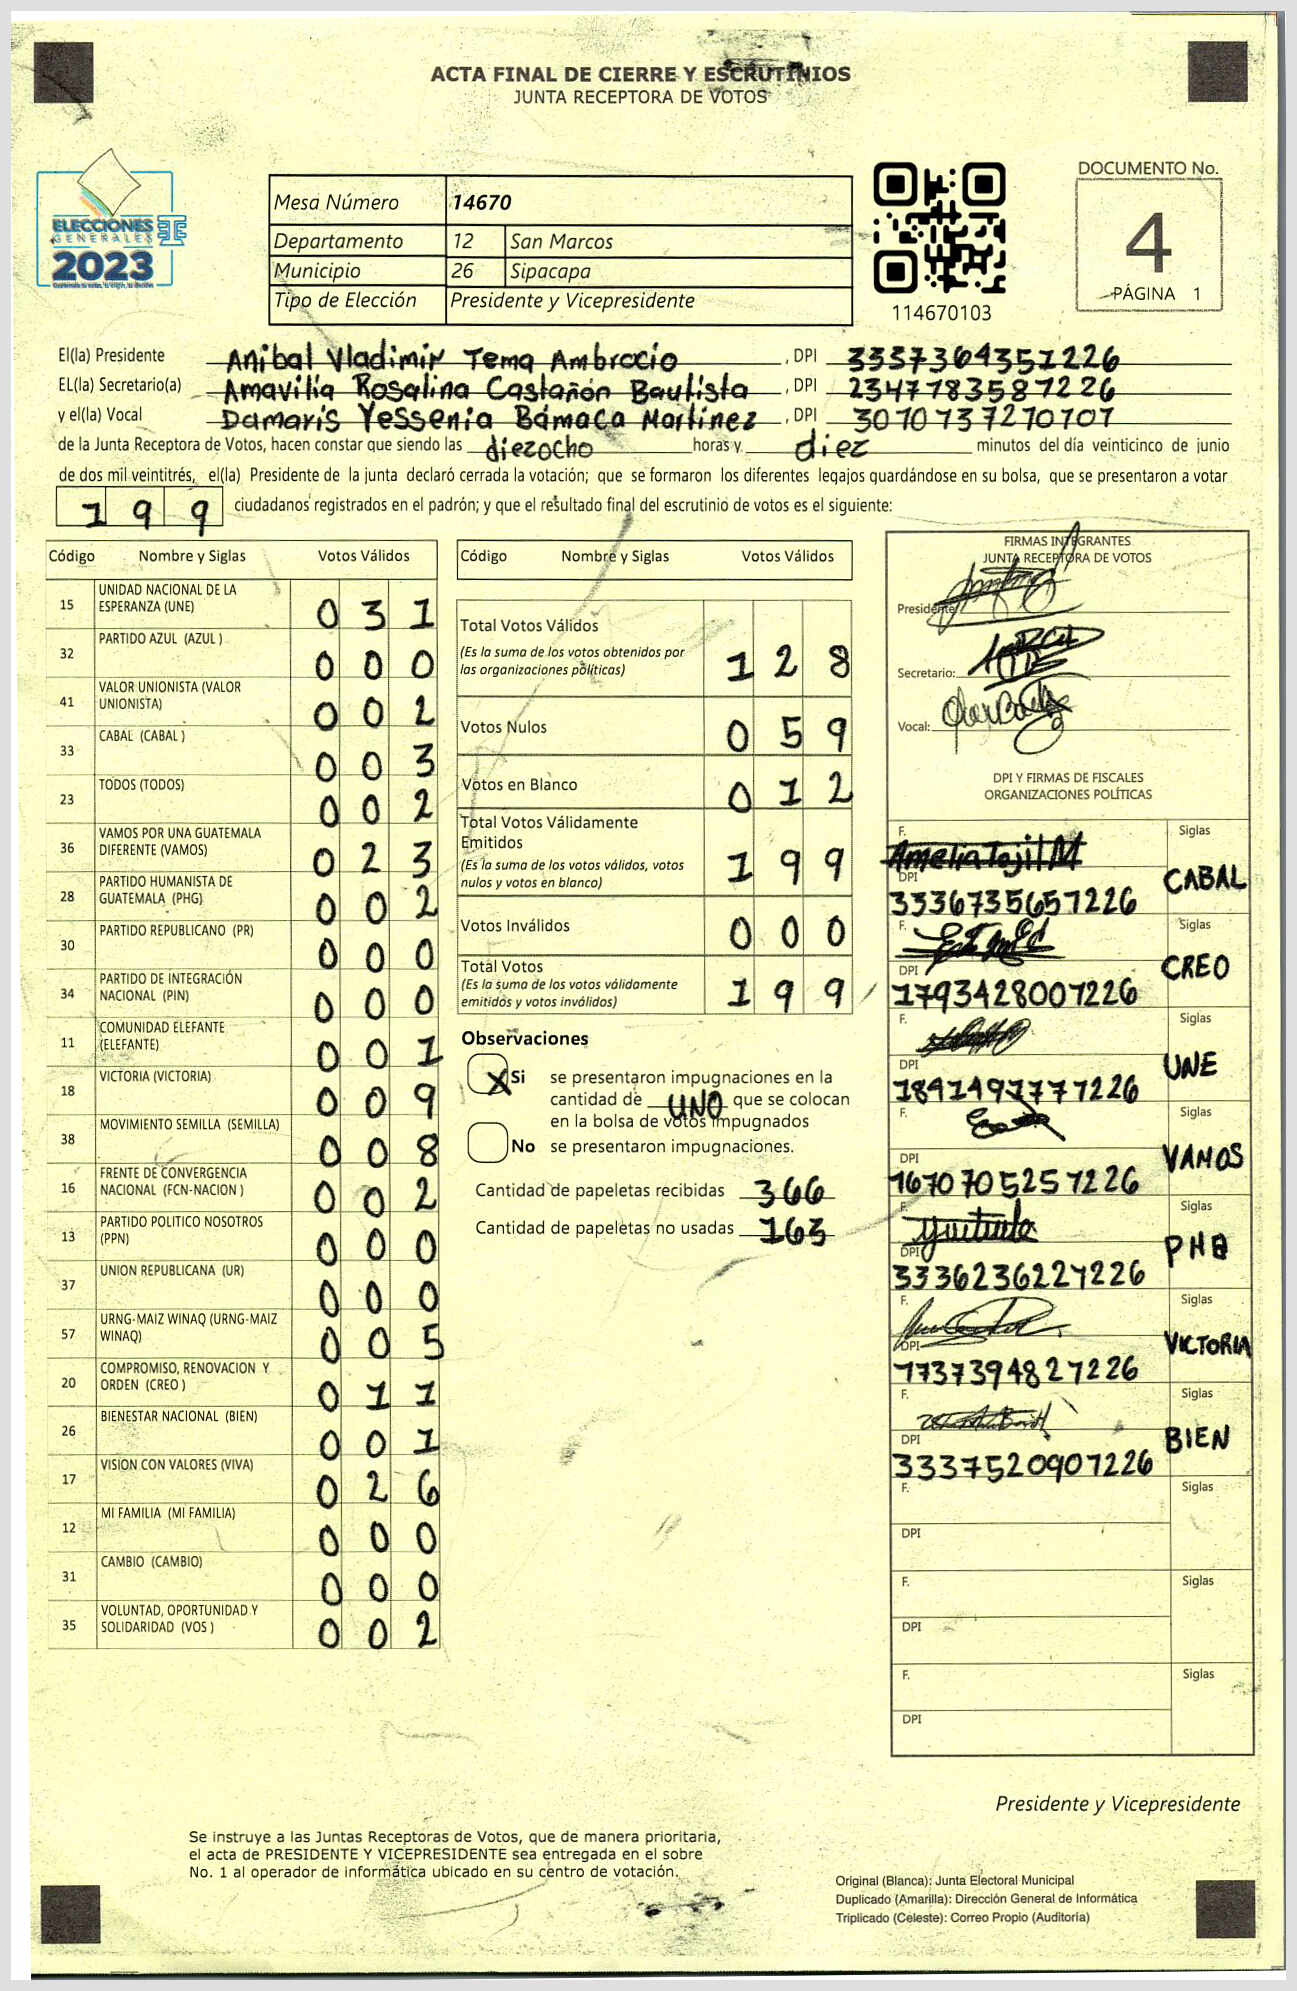 ACTA FINAL DE CIERRE Y ESCRUTINIOS
JUNTA RECEPTORA DE VOTOS
ELECCIONES
GENERALES
2023
Mesa Número 14670
Departamento 12 San Marcos
Municipio 26 Sipacapa
Tipo de Elección Presidente y Vicepresidente
114670103
DOCUMENTO No.
4
PÁGINA 1
El(la) Presidente Anibal Vladimir Tema Ambrocio , DPI 3337364357226
EL(la) Secretario(a) Amavilia Rosalina Castañón Bautista , DPI 2347783587226
y el(la) Vocal Damaris Yessenia Bámaca Martínez , DPI 3070737270707
de la Junta Receptora de Votos, hacen constar que siendo las diezocho horas y diez minutos del día veinticinco de junio
de dos mil veintitrés, el(la) Presidente de la junta declaró cerrada la votación; que se formaron los diferentes legajos guardándose en su bolsa, que se presentaron a votar
199 ciudadanos registrados en el padrón; y que el resultado final del escrutinio de votos es el siguiente:
Código Nombre y Siglas Votos Válidos
15 UNIDAD NACIONAL DE LA
ESPERANZA (UNE) 031
32 PARTIDO AZUL (AZUL ) 000
41 VALOR UNIONISTA (VALOR
UNIONISTA) 002
33 CABAL (CABAL ) 003
23 TODOS (TODOS) 002
36 VAMOS POR UNA GUATEMALA
DIFERENTE (VAMOS) 023
28 PARTIDO HUMANISTA DE
GUATEMALA (PHG) 002
30 PARTIDO REPUBLICANO (PR) 000
34 PARTIDO DE INTEGRACIÓN
NACIONAL (PIN) 000
11 COMUNIDAD ELEFANTE
(ELEFANTE) 001
18 VICTORIA (VICTORIA) 009
38 MOVIMIENTO SEMILLA (SEMILLA) 008
16 FRENTE DE CONVERGENCIA
NACIONAL (FCN-NACION ) 002
13 PARTIDO POLITICO NOSOTROS
(PPN) 000
37 UNION REPUBLICANA (UR) 000
57 URNG-MAIZ WINAQ (URNG-MAIZ
WINAQ) 005
20 COMPROMISO, RENOVACION Y
ORDEN (CREO ) 011
26 BIENESTAR NACIONAL (BIEN) 001
17 VISION CON VALORES (VIVA) 026
12 MI FAMILIA (MI FAMILIA) 000
31 CAMBIO (CAMBIO) 000
35 VOLUNTAD, OPORTUNIDAD Y
SOLIDARIDAD (VOS ) 002
Código Nombre y Siglas Votos Válidos
Total Votos Válidos
(Es la suma de los votos obtenidos por
las organizaciones políticas) 128
Votos Nulos 059
Votos en Blanco 012
Total Votos Válidamente
Emitidos
(Es la suma de los votos válidos, votos
nulos y votos en blanco) 199
Votos Inválidos 000
Total Votos
(Es la suma de los votos válidamente
emitidos y votos inválidos) 199
Observaciones
X Si se presentaron impugnaciones en la
cantidad de UNO que se colocan
en la bolsa de votos impugnados
No se presentaron impugnaciones.
Cantidad de papeletas recibidas 366
Cantidad de papeletas no usadas 163
FIRMAS INTEGRANTES
JUNTA RECEPTORA DE VOTOS
Presidente:
Secretario:
Vocal:
DPI Y FIRMAS DE FISCALES
ORGANIZACIONES POLÍTICAS
F. Amelia Tojil M Siglas
DPI 3336735657226 CABAL
F. Siglas
DPI 1793428007226 CREO
F. Siglas
DPI 1841497777226 UNE
F. Siglas
DPI 1670705257226 VAMOS
F. Siglas
DPI 3336236227226 PHG
F. Siglas
DPI 1737394827226 VICTORIA
F. Siglas
DPI 3337520907226 BIEN
F. Siglas
DPI
F. Siglas
DPI
F. Siglas
DPI
Presidente y Vicepresidente
Se instruye a las Juntas Receptoras de Votos, que de manera prioritaria,
el acta de PRESIDENTE Y VICEPRESIDENTE sea entregada en el sobre
No. 1 al operador de informática ubicado en su centro de votación.
Original (Blanca): Junta Electoral Municipal
Duplicado (Amarilla): Dirección General de Informática
Triplicado (Celeste): Correo Propio (Auditoría)